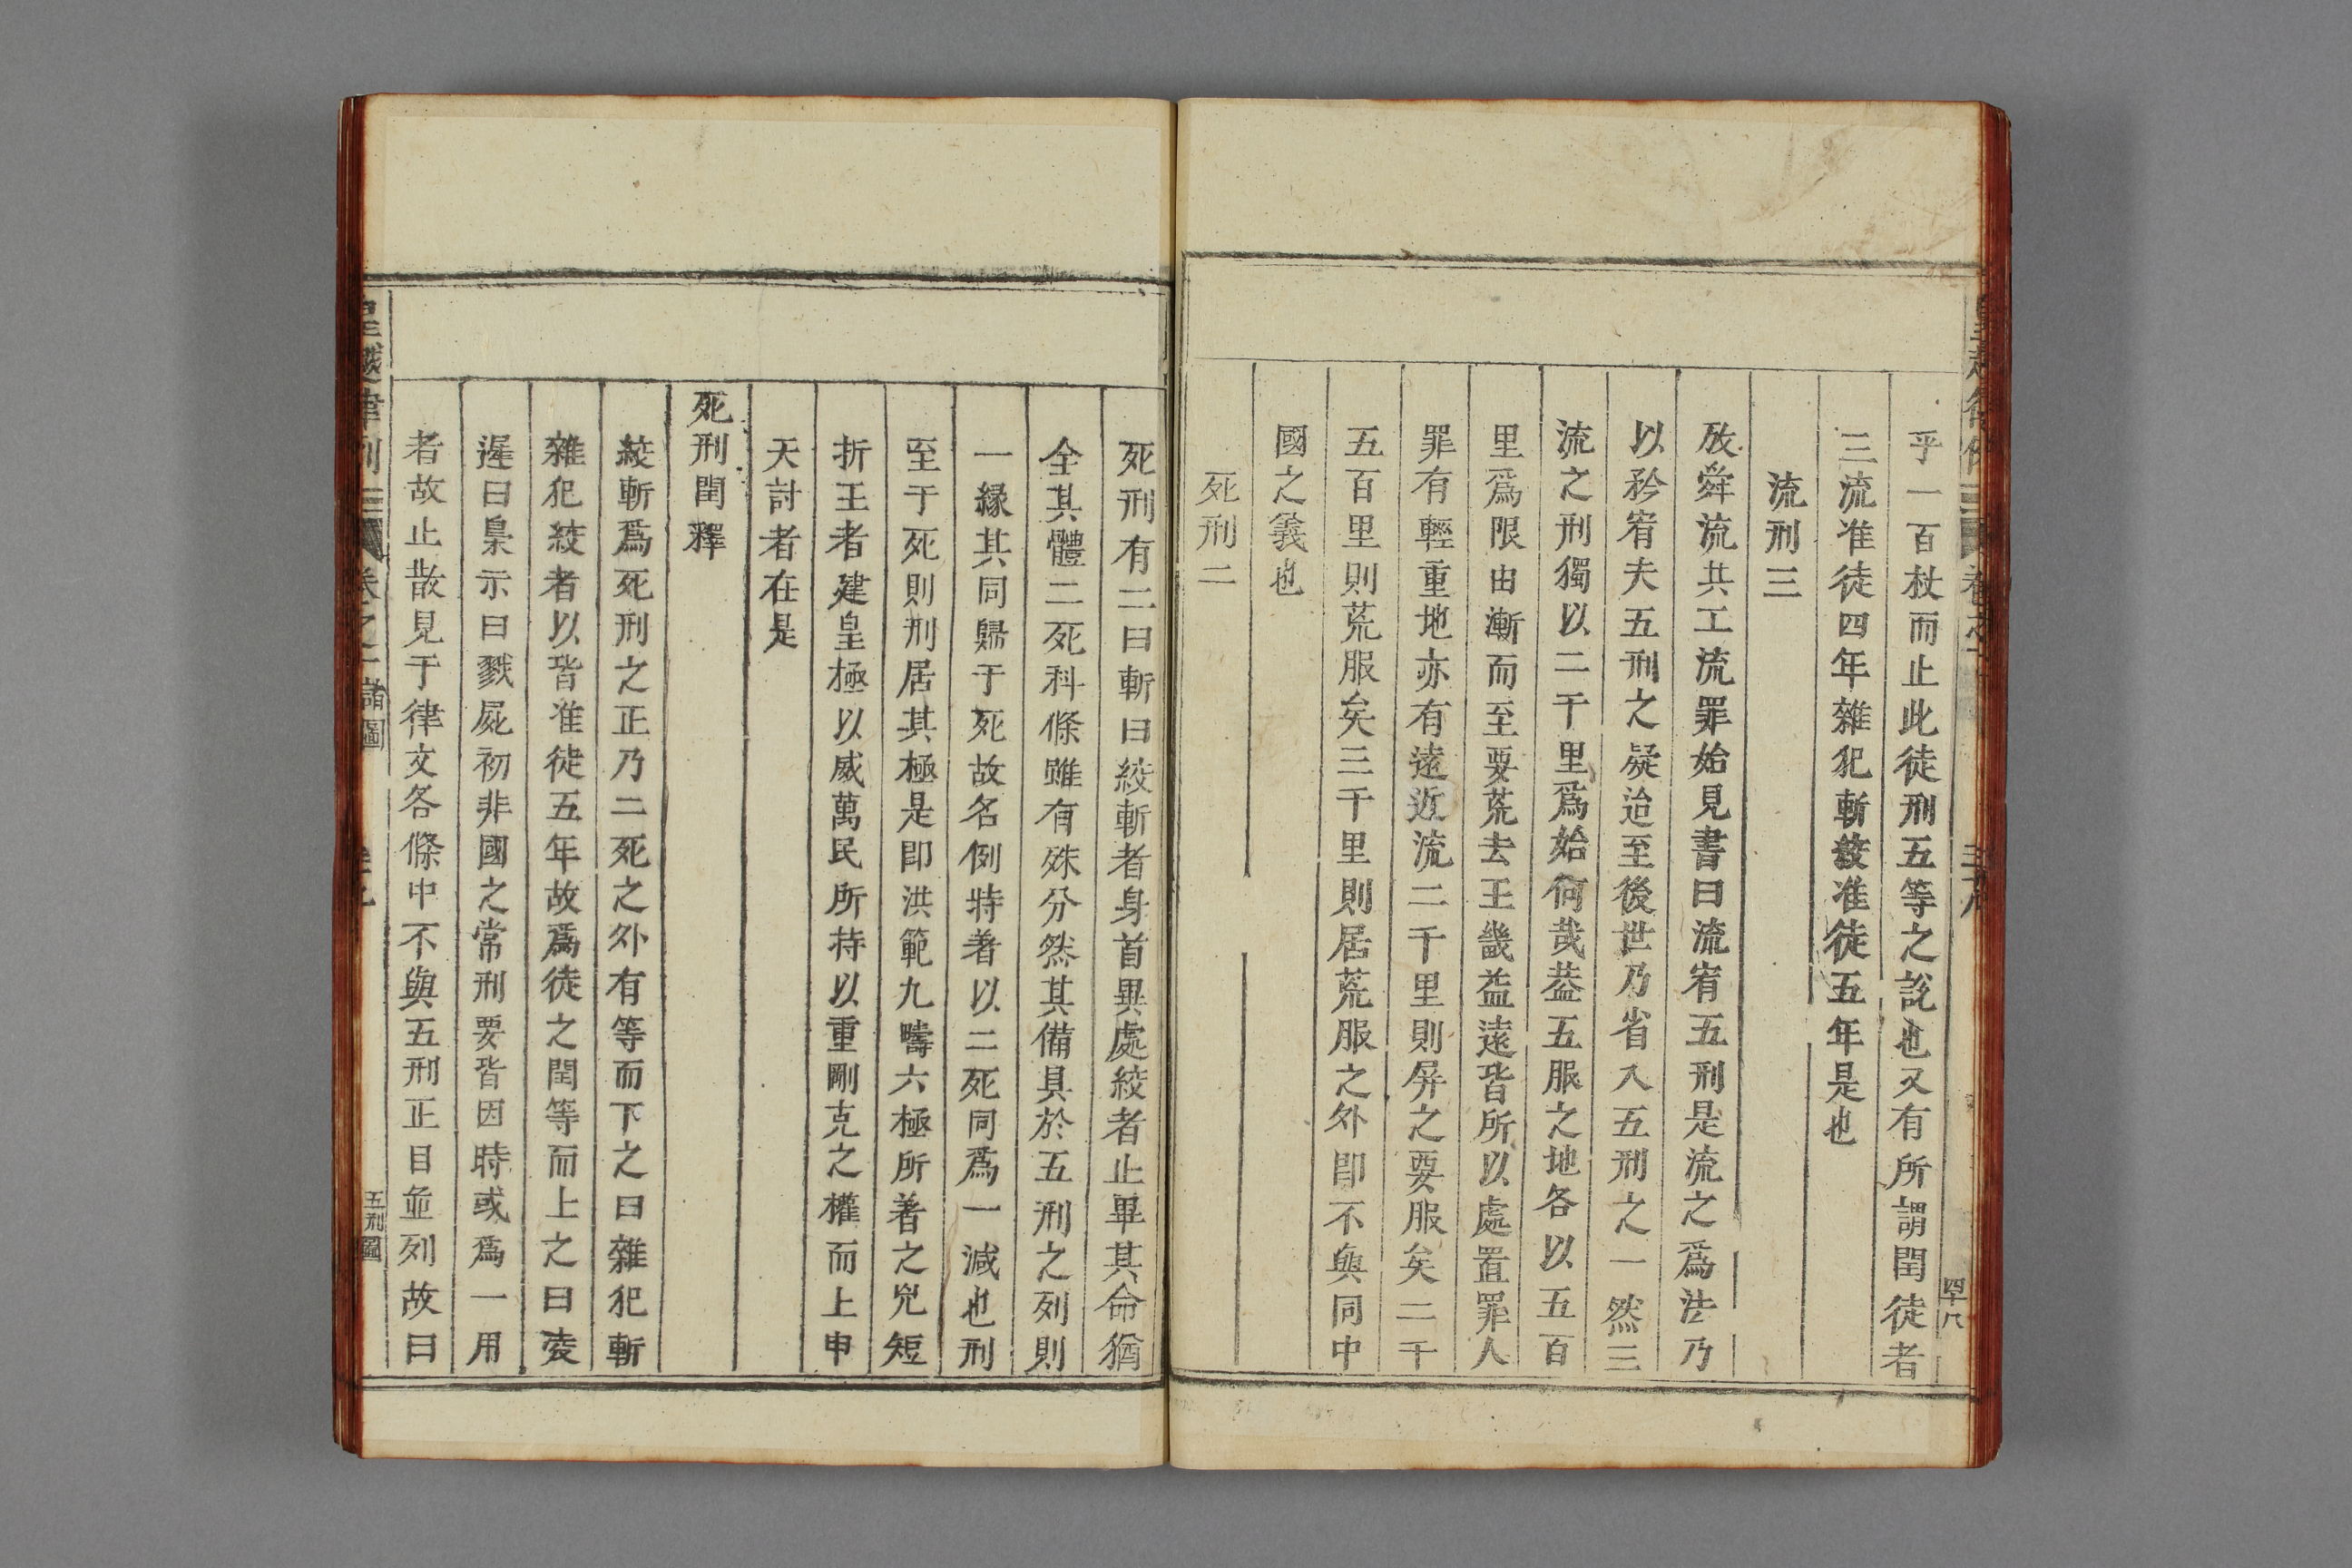 乎一百杖而止此徒刑五等之說也又有所謂閏徒者
三流准徒四年雜犯斬絞准徒五年是也
流刑三
放舜流共工流罪始見書曰流宥五刑是流之爲法乃
以矜宥夫五刑之疑迨至後世乃省入五刑之一然三
流之刑獨以二千里爲始何哉葢五服之地各以五百
里爲限由漸而至要荒去王畿益遠皆所以處置罪人
罪有輕重地亦有遠近流二千里則屏之要服矣二千
五百里則荒服矣三千里則居荒服之外即不與同中
國之義也
死刑二
死刑有二曰斬曰絞斬者身首異處絞者止畢其命猶
全其體二死科條雖有殊分然其備具於五刑之列則
一緣其同歸于死故名例特著以二死同爲一減也刑
至于死則刑居其極是即洪範九疇六極所著之兇短
折王者建皇極以威萬民所持以重剛克之權而上申
天討者在是
死刑閏釋
絞斬爲死刑之正乃二死之外有等而下之曰雜犯斬
雜犯絞者以皆准徒五年故爲徒之閏等而上之曰凌
遲曰梟示曰戮屍初非國之常刑要皆因時或爲一用
者故止散見于律文各條中不與五刑正目並列故曰
皇越律例三 卷之一 諸圖 五刑圖
四十八